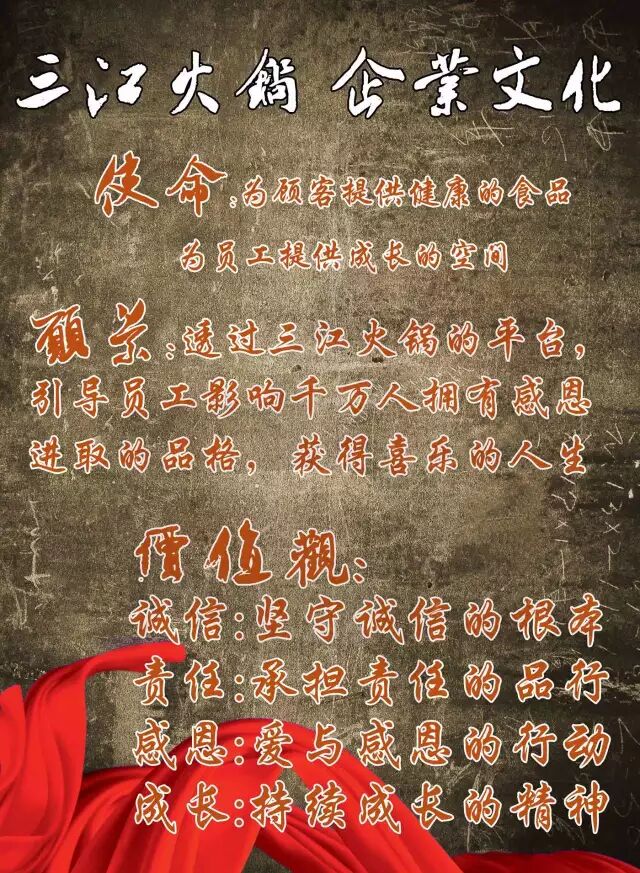 三江火鍋 企業文化
使命:为顾客提供健康的食品
为员工提供成长的空间
願景:透过三江火锅的平台，
引导员工影响千万人拥有感恩
进取的品格，获得喜乐的人生
價值觀:
诚信:坚守诚信的根本
责任:承担责任的品行
感恩:爱与感恩的行动
成长:持续成长的精神